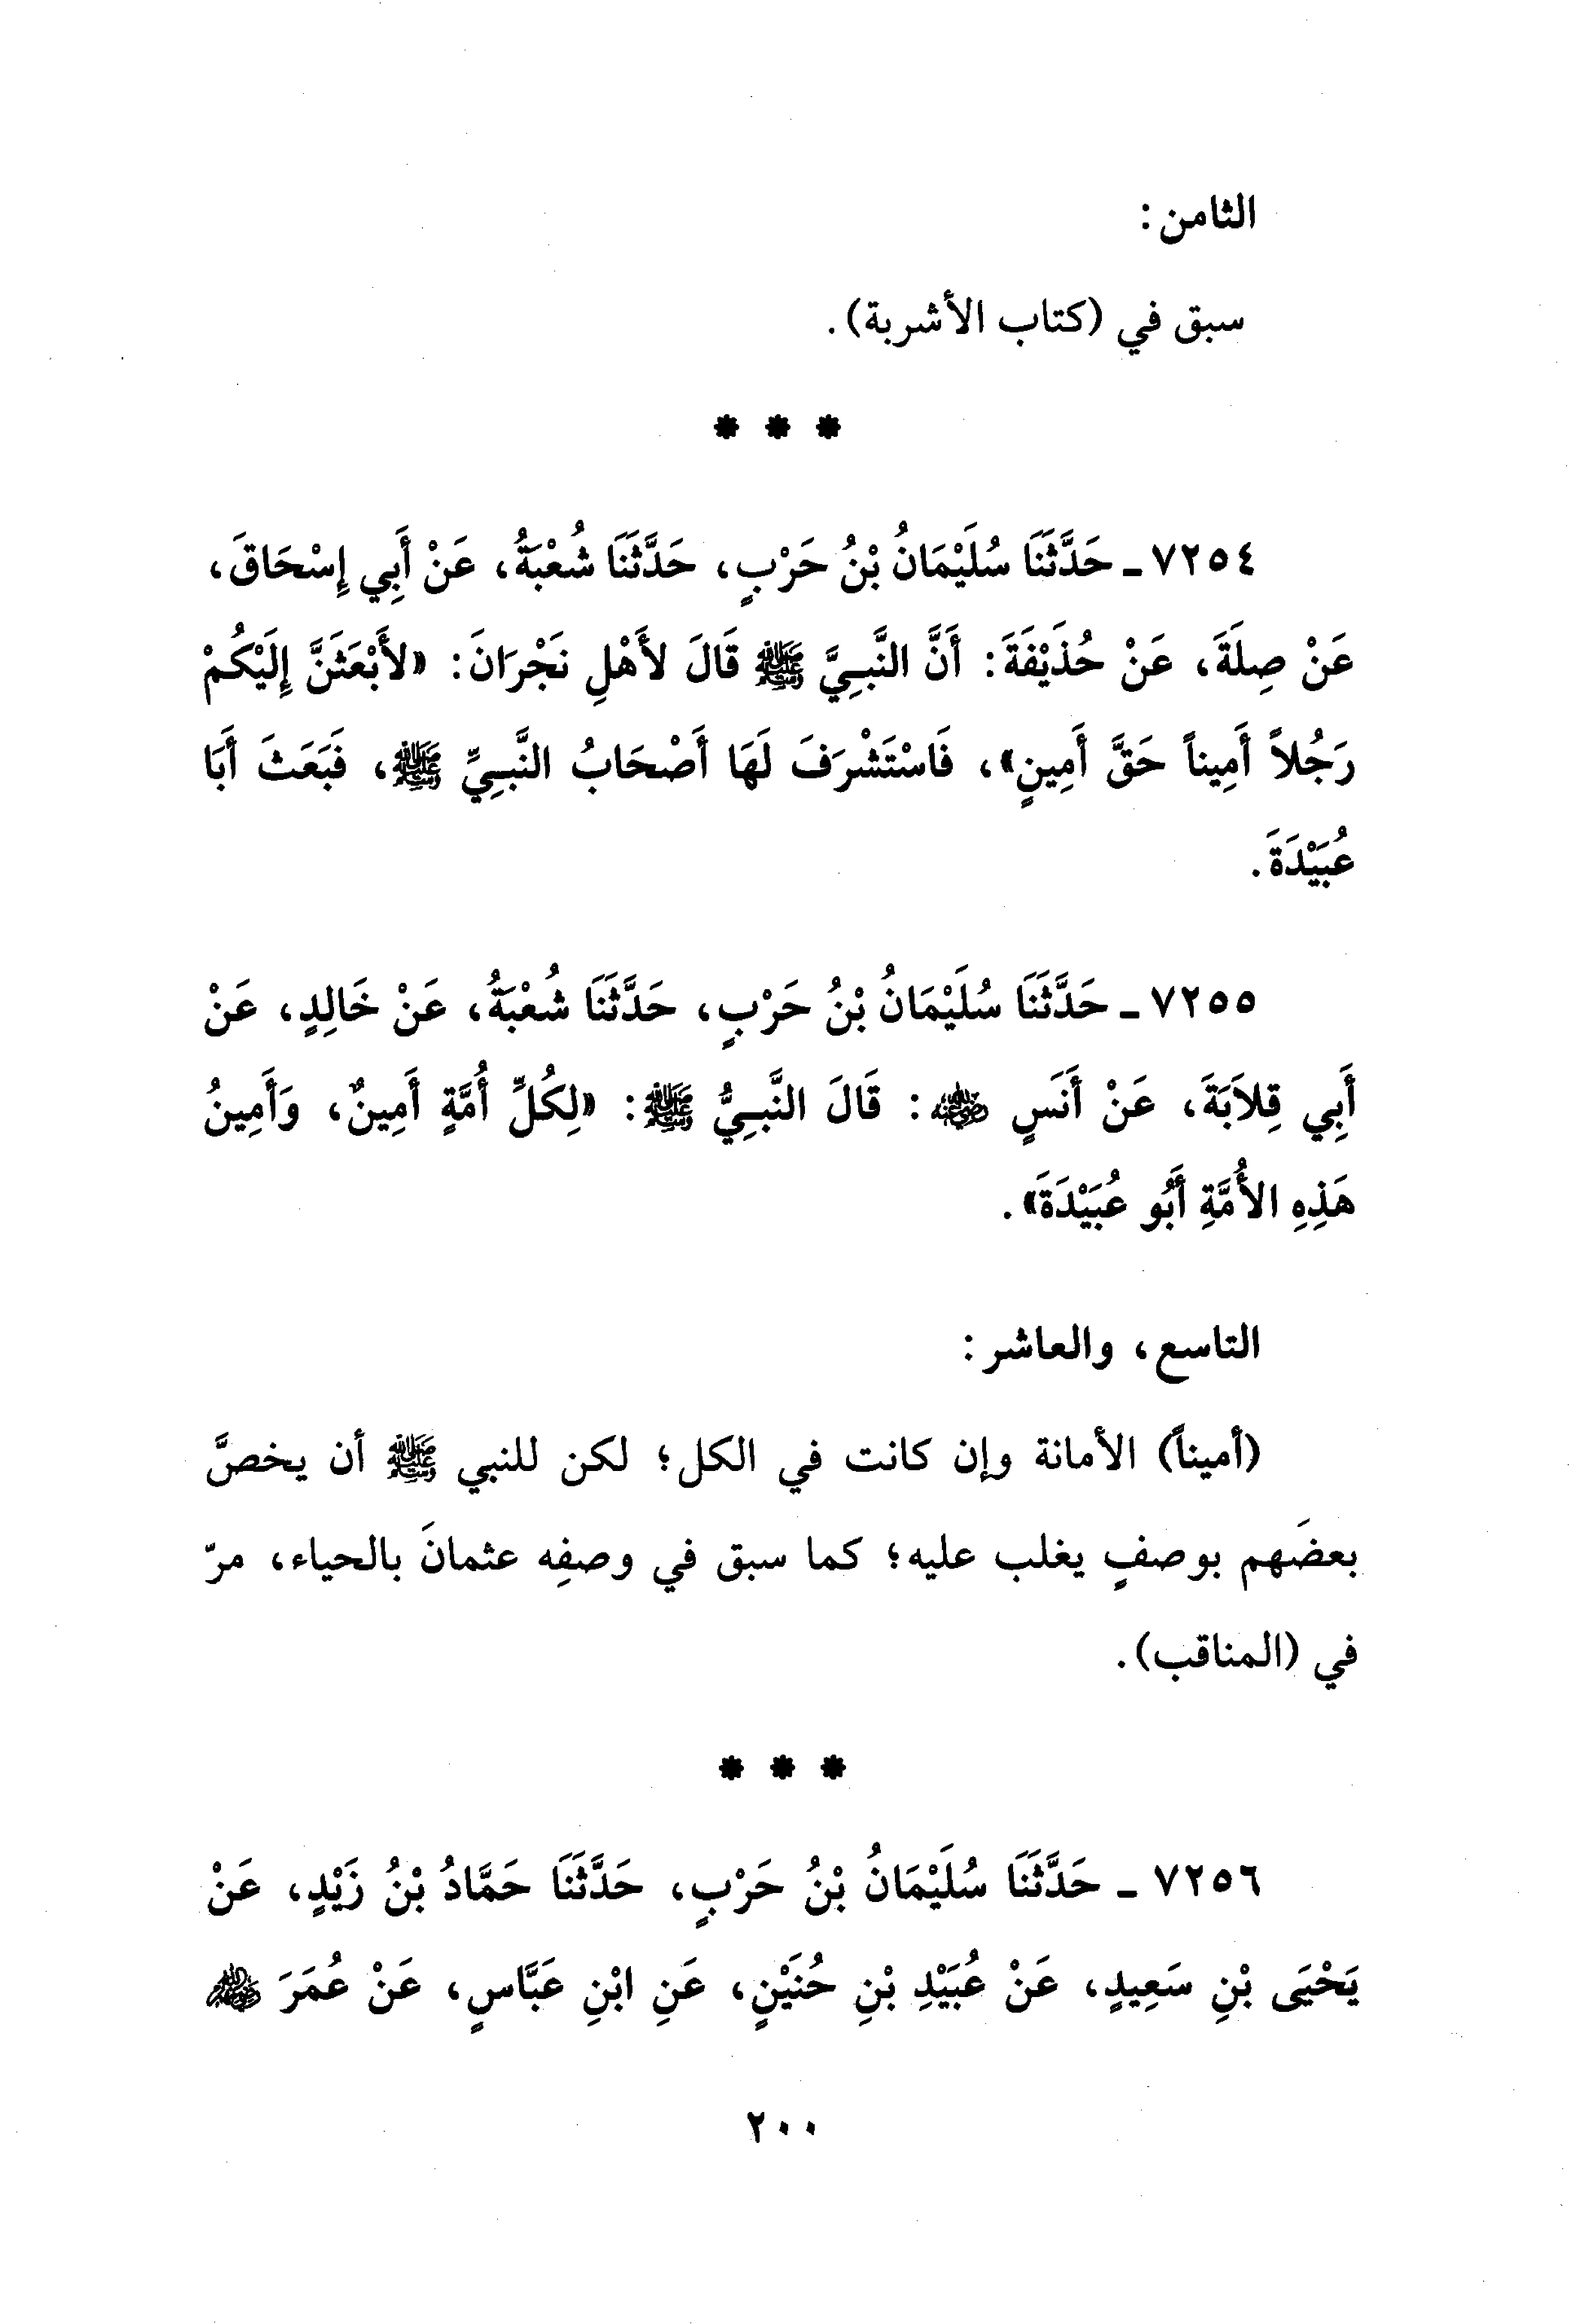 الثامن:
سبق في (كتاب الأشربة).
* * *
٧٢٥٤ ـ حَدَّثَنَا سُلَيْمَانُ بْنُ حَرْبٍ، حَدَّثَنَا شُعْبَةُ، عَنْ أَبِي إِسْحَاقَ،
عَنْ صِلَةَ، عَنْ حُذَيْفَةَ: أَنَّ النَّبِيَّ ﷺ قَالَ لأَهْلِ نَجْرَانَ: «لأَبْعَثَنَّ إِلَيْكُمْ
رَجُلاً أَمِيناً حَقَّ أَمِينٍ»، فَاسْتَشْرَفَ لَهَا أَصْحَابُ النَّبِيِّ ﷺ، فَبَعَثَ أَبَا
عُبَيْدَةَ.
٧٢٥٥ ـ حَدَّثَنَا سُلَيْمَانُ بْنُ حَرْبٍ، حَدَّثَنَا شُعْبَةُ، عَنْ خَالِدٍ، عَنْ
أَبِي قِلاَبَةَ، عَنْ أَنَسٍ ﵁: قَالَ النَّبِيُّ ﷺ: «لِكُلِّ أُمَّةٍ أَمِينٌ، وَأَمِينُ
هَذِهِ الأُمَّةِ أَبُو عُبَيْدَةَ».
التاسع، والعاشر:
(أميناً) الأمانة وإن كانت في الكل؛ لكن للنبي ﷺ أن يخصَّ
بعضَهم بوصفٍ يغلب عليه؛ كما سبق في وصفِه عثمانَ بالحياء، مرّ
في (المناقب).
* * *
٧٢٥٦ ـ حَدَّثَنَا سُلَيْمَانُ بْنُ حَرْبٍ، حَدَّثَنَا حَمَّادُ بْنُ زَيْدٍ، عَنْ
يَحْيَى بْنِ سَعِيدٍ، عَنْ عُبَيْدِ بْنِ حُنَيْنٍ، عَنِ ابْنِ عَبَّاسٍ، عَنْ عُمَرَ ﵃
٢٠٠